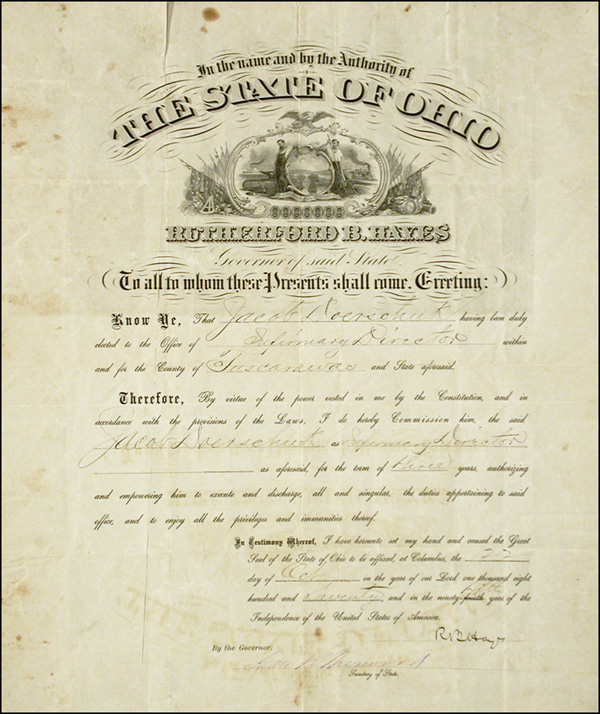 In the name and by the Authority of
THE STATE OF OHIO
RUTHERFORD B. HAYES
Governor of said State
To all to whom these Presents shall come, Greeting:
Know Ye, That Jacob Doerschuk having been duly
elected to the Office of Infirmary Director within
and for the County of Tuscarawas and State aforesaid.
Therefore, By virtue of the power vested in me by the Constitution, and in
accordance with the provisions of the Laws, I do hereby Commission him, the said
Jacob Doerschuk as Infirmary Director
as aforesaid, for the term of three years, authorizing
and empowering him to execute and discharge, all and singular, the duties appertaining to said
office, and to enjoy all the privileges and immunities thereof.
In Testimony Whereof, I have hereunto set my hand and caused the Great
Seal of the State of Ohio to be affixed, at Columbus, the
day of Oct in the year of our Lord one thousand eight
hundred and seventy and in the ninety-fourth year of the
Independence of the United States of America.
R B Hayes
By the Governor:
Secretary of State.